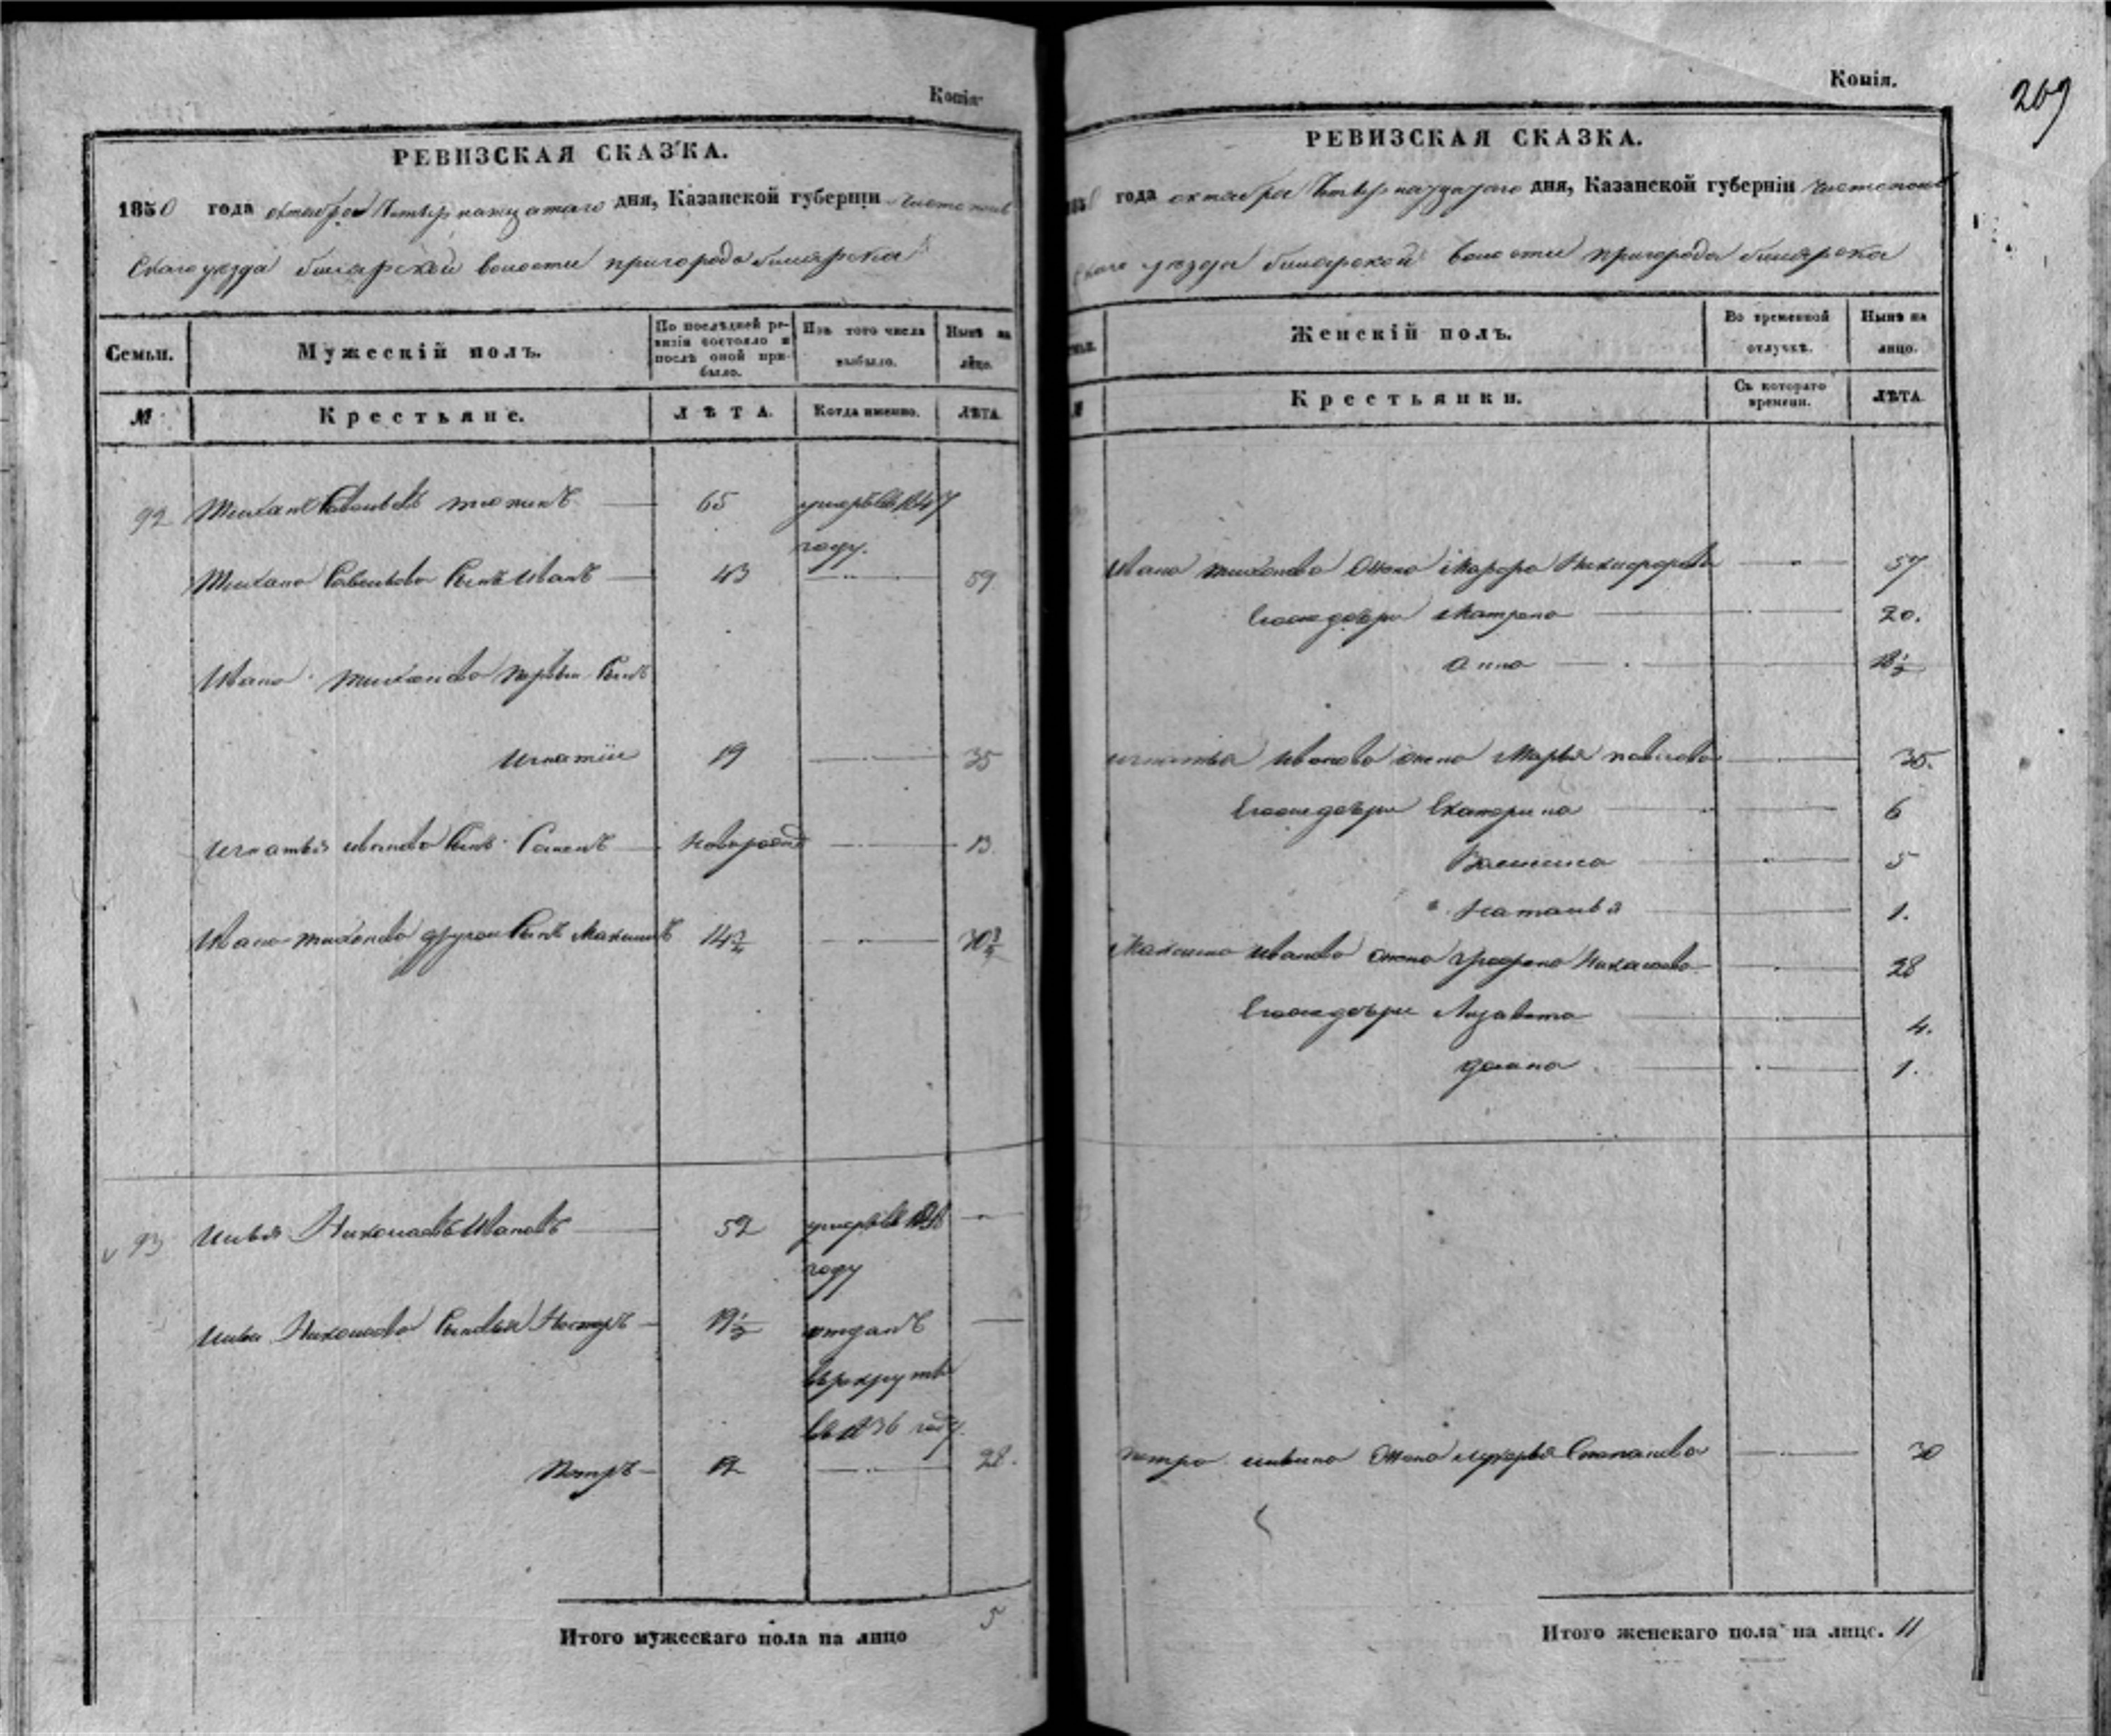 Копія
РЕВИЗСКАЯ СКАЗКА.
1850 года октября Четыренацатаго дня, Казанской губерніи Чистополь
Скаго уезда билярской волости пригорода билярска
Семьи.
Мужескій полъ.
По послѣдней ре-
визіи состояло и
послѣ оной при-
было.
Изъ того числа
выбыло.
Нынѣ на
лицо.
№
Крестьяне.
ЛѢТА.
Когда именно.
ЛѢТА.
92 Тихан Савельевъ 65 умеръ въ 1847
году.
Тихана Савельева Сынъ Иванъ 43 59
Ивана Тиханова первы Сынъ
Игнатіи 19 35
Игнатья иванова Сынъ Семенъ новорожд 13
Ивана тиханова другои Сынъ Максимъ 14 3/4 30 3/4
93 Илья Николаевъ Ивановъ 52 умеръ въ
году
Ильи Николаева Сыновья Нестеръ 19 1/2 отданъ
в рекруты
въ 1836 году.
Петръ 12 28.
Итого мужескаго пола на лицо 5
Копія.
269
РЕВИЗСКАЯ СКАЗКА.
года октября Четырнадцатаго дня, Казанской губерніи Чистополь
скаго уезда билярской волости пригорода билярска
Женскій полъ.
Во временной
отлучкѣ.
Нынѣ на
лицо.
Крестьянки.
Съ котораго
времени.
ЛѢТА.
Ивана тиханова жена Марфа Никифорова 57
Егоже дочери Матрена 20.
Анна 18 1/2
игнатья иванова жена Марья павлова 35.
Егоже дочери Екатерина 6
5
Наталья 1.
Максима иванова жена Графена Николаева 28
Егоже дочери Лизавета 4.
1.
петра ильина жена лукерья Степанова 30
Итого женскаго пола на лицс. 11